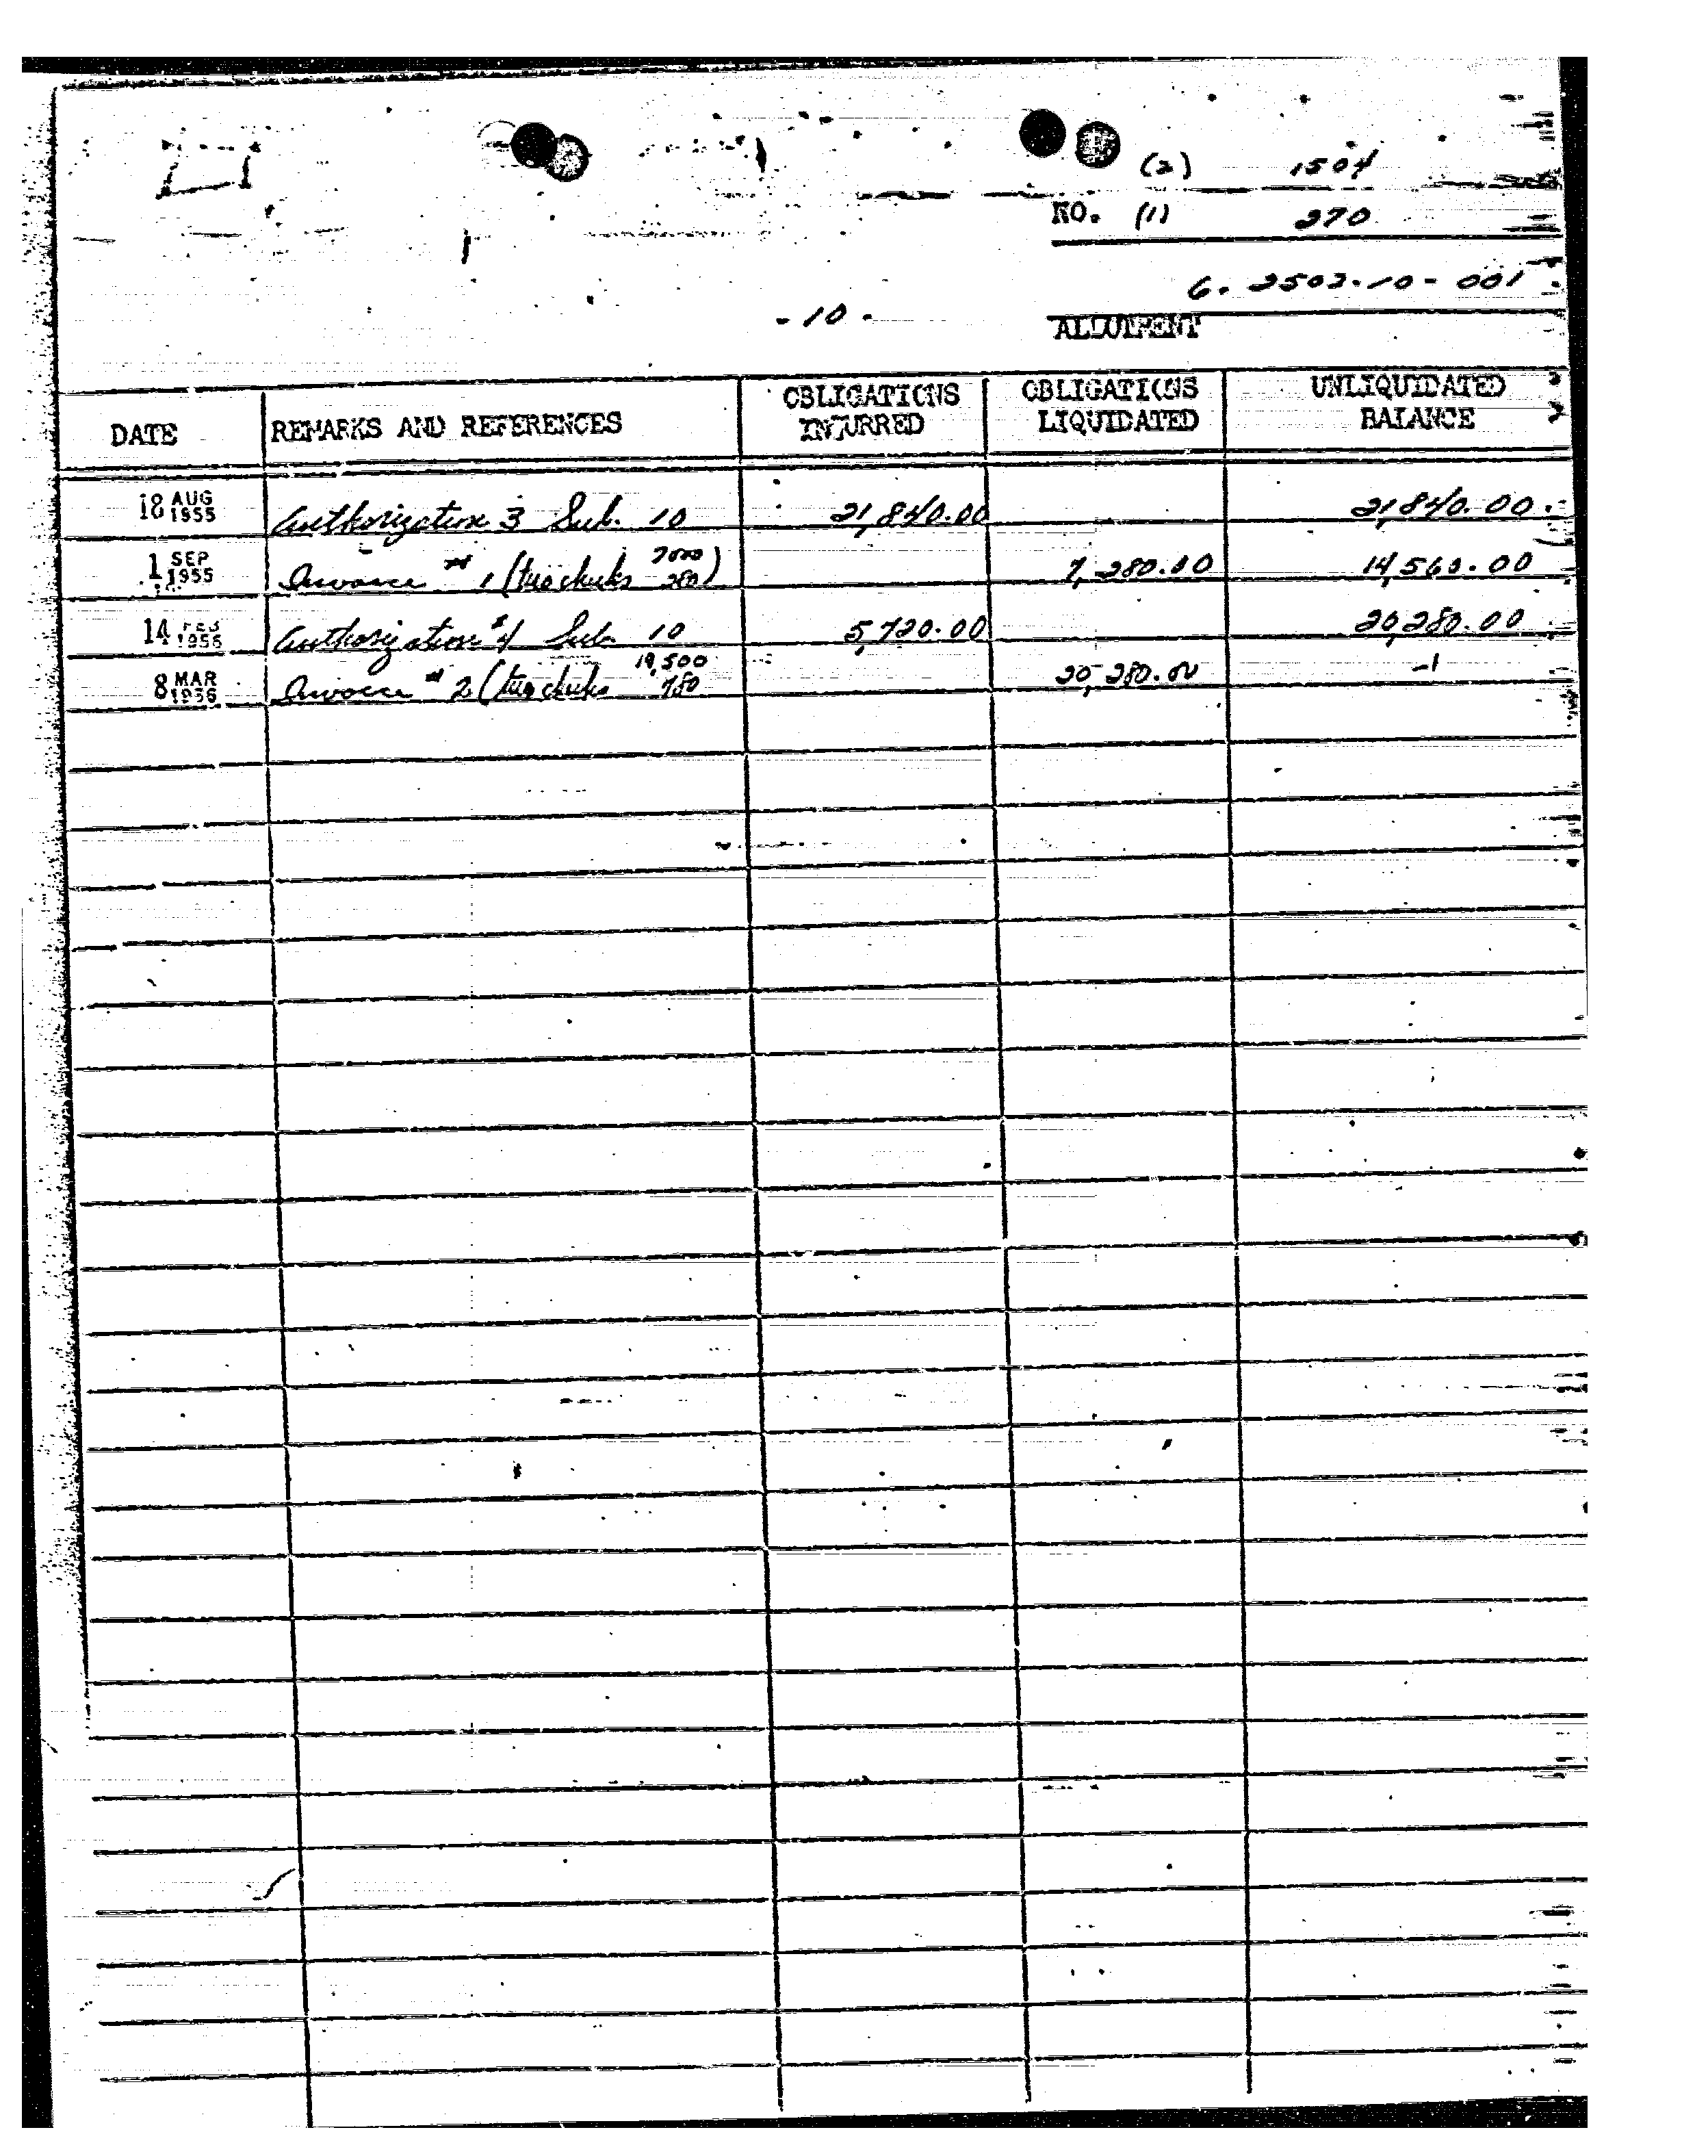 (2) 1504
NO. (1) 270
6. 2502-10-001
-10-
ALLOTMENT
DATE REMARKS AND REFERENCES OBLIGATIONS INCURRED OBLIGATIONS LIQUIDATED UNLIQUIDATED BALANCE
18 AUG 1955 Authorization 3 Sub. 10 21,840.00 21,840.00
1 SEP 1955 Invoice # 1 (two checks 7000 280) 7,280.00 14,560.00
14 FEB 1956 Authorization #4 Sub. 10 5,720.00 20,280.00
8 MAR 1956 Invoice # 2 (two checks 19,500 780 20,280.00